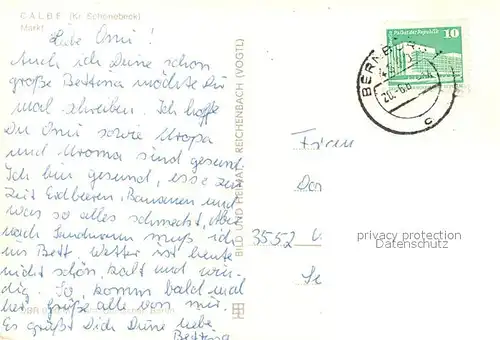 CALBE (Kr. Schönebeck)
Markt
Liebe Omi!
Auch ich Deine schon
große Bettina möchte Dir
mal schreiben. Ich hoffe
Du Omi sowie Uropa
und Uroma sind gesund.
Ich bin gesund, esse zur
Zeit Erdbeeren, Bananen und
was so alles schmeckt. Aber
nach Sandmann muß ich
ins Bett. Wetter ist heute
nicht schön, kalt und win-
dig. So, komm bald mal
her. Grüße alle von mir.
Es grüßt Dich Deine liebe
Bettina
BILD UND HEIMAT REICHENBACH (VOGTL)
Palast der Republik
10
BERNBURG
c
3552
privacy protection
Datenschutz